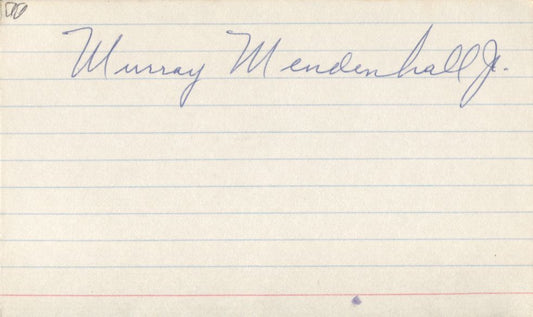 Murray Mendenhall Jr.